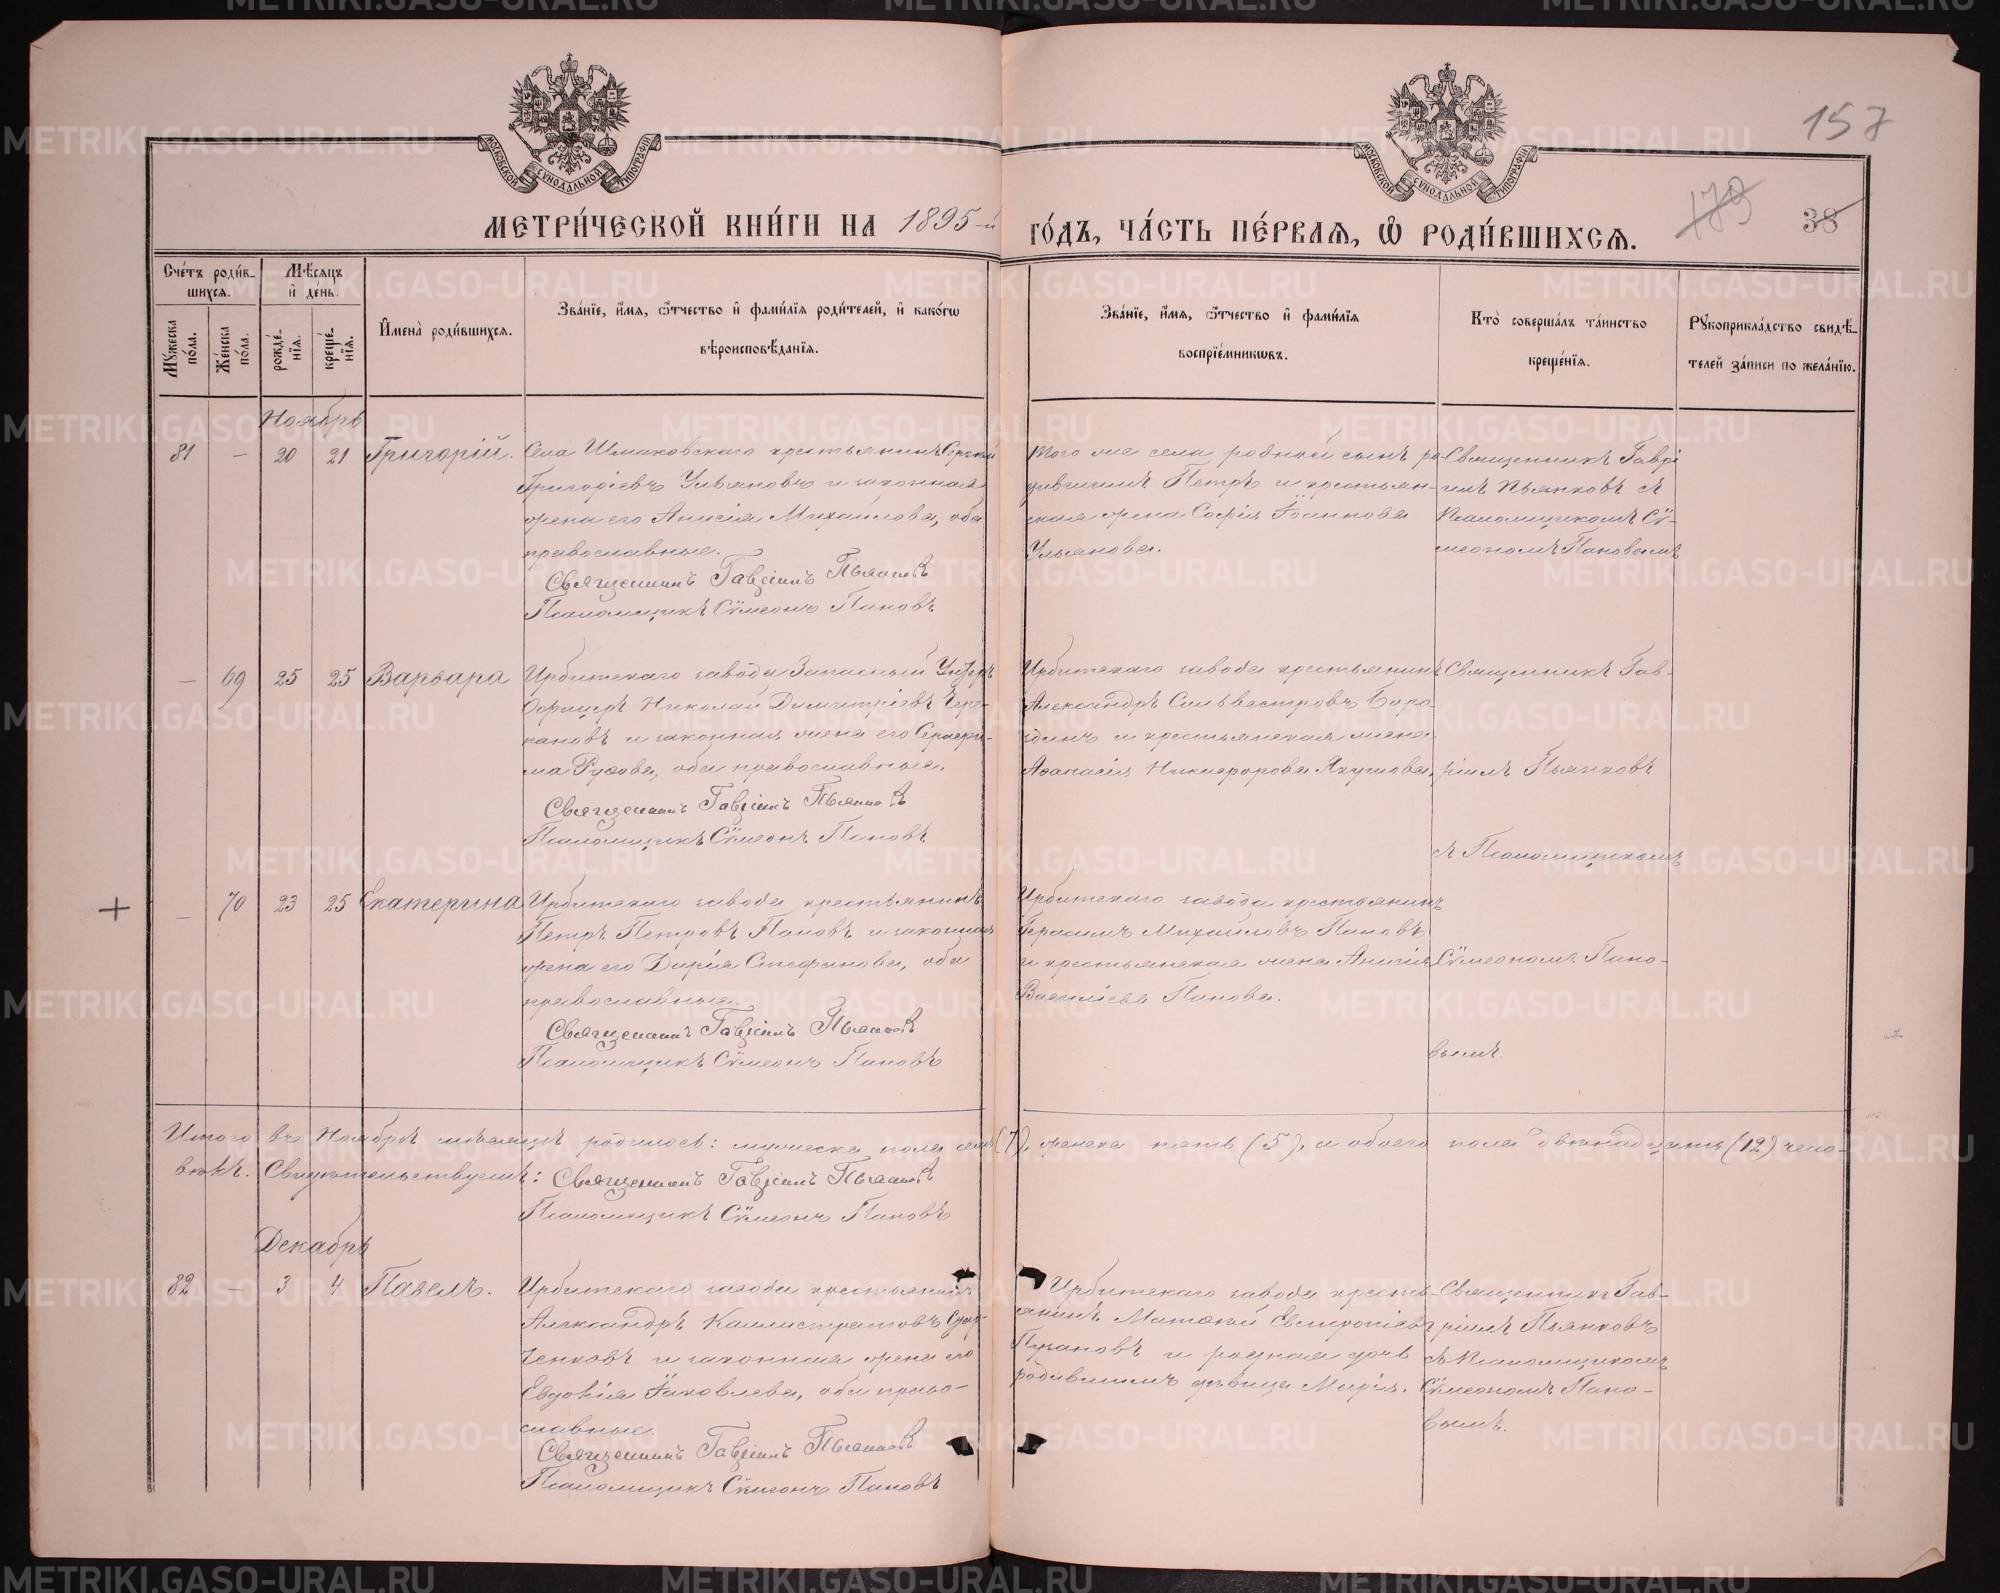 157
179
38
МОСКОВСКОЙ СѴНОДАЛЬНОЙ ТИПОГРАФІИ
МОСКОВСКОЙ СѴНОДАЛЬНОЙ ТИПОГРАФІИ
МЕТРИ́ЧЕСКОЙ КНИ́ГИ НА 1895-й ГО́ДЪ, ЧА́СТЬ ПЕ́РВАЯ, Ѡ РОДИ́ВШИХСЯ.
Счетъ роди́вшихся.
Мѣсяцъ и день.
Мужеска по́ла.
Женска по́ла.
рожде́нія.
креще́нія.
Имена роди́вшихся.
Зва́ніе, имя, отчество и фами́лія роди́телей, и како́гѡ
вѣроисповѣданія.
Зва́ніе, имя, отчество и фами́лія
воспріе́мниковъ.
Кто соверша́лъ та́инство
креще́нія.
Рукоприкла́дство свидѣ-
телей за́писи по жела́нію.
Ноябрь
81 — 20 21 Григорій.
Села Шмаковскаго крестьянинъ Сергѣй
Григоріевъ Ульяновъ и законная
жена его Анисія Михаилова, оба
православные.
Священникъ Гавріилъ Пьянковъ
Псаломщикъ Сѵмеонъ Пановъ
Того же села родной сынъ ро-
дившихъ Петръ и крестьян-
ская жена Софія Іоаннова
Ульянова.
Священникъ Гаврі
илъ Пьянковъ съ
Псаломщикомъ Сѵ-
меономъ Пановымъ
— 69 25 25 Варвара
Ирбитскаго завода Запасный Унтеръ
Офицеръ Николай Димитріевъ Чере-
пановъ и законная жена его Серафи-
ма, оба православные.
Священникъ Гавріилъ Пьянковъ
Псаломщикъ Сѵмеонъ Пановъ
Ирбитскаго завода крестьянинъ
Александръ Сильвестровъ Боро-
динъ и крестьянская жена
Аѳанасія Никифорова Якушова,
Священникъ Гав-
ріилъ Пьянковъ
съ Псаломщикомъ
Сѵмеономъ Пано-
вымъ.
+
— 70 23 25 Екатерина
Ирбитскаго завода крестьянинъ
Петръ Петровъ Пановъ и законная
жена его Дарія Стефанова, оба
православные.
Священникъ Гавріилъ Пьянковъ
Псаломщикъ Сѵмеонъ Пановъ
Ирбитскаго завода крестьянинъ
Герасимъ Михаиловъ Пановъ
и крестьянская жена Анисія
Василіева Панова.
Итого въ Ноябрѣ мѣсяцѣ родилось: мужеска пола семь (7), женска пять (5), а обоего пола двѣнадцать (12) чело-
вѣкъ. Свидѣтельствуемъ: Священникъ Гавріилъ Пьянковъ
Псаломщикъ Сѵмеонъ Пановъ
Декабрь
82 — 3 4 Павелъ.
Ирбитскаго завода крестьянинъ
Александръ Каллистратовъ
и законная жена его
Евдокія Іаковлева, оба право-
славные.
Священникъ Гавріилъ Пьянковъ
Псаломщикъ Сѵмеонъ Пановъ
Ирбитскаго завода кресть-
янинъ Матѳей Евтропіевъ
Пузановъ и родная дочь
родившихъ дѣвица Марія.
Священникъ Гав-
ріилъ Пьянковъ
съ Псаломщикомъ
Сѵмеономъ Пано-
вымъ.
METRIKI.GASO-URAL.RU